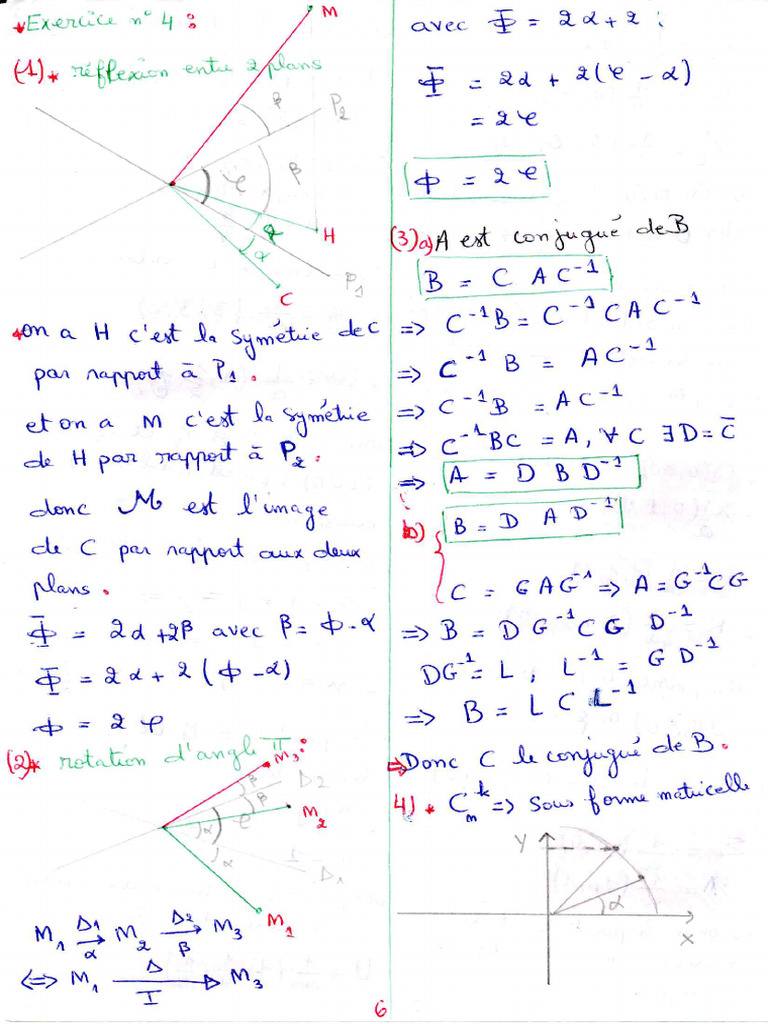 * Exercice n° 4 :
(1)* réflexion entre 2 plans
M
β
P2
φ
β
H
α
α
P1
C
*on a H c'est la symétrie de C
par rapport à P1.
et on a M c'est la symétrie
de H par rapport à P2.
donc M est l'image
de C par rapport aux deux
plans.
Φ̄ = 2α + 2β avec β = Φ - α
Φ̄ = 2α + 2 (Φ - α)
Φ = 2φ
(2)* rotation d'angle π :
M3
Δ2
β
β
M2
α
φ
α
Δ1
M1
M1 →(Δ1, α) M2 →(Δ2, β) M3
<=> M1 →(Δ, I) M3
avec Φ̄ = 2α + 2 :
Φ̄ = 2α + 2(φ - α)
= 2φ
Φ = 2φ
(3)a) A est conjugué de B
B = C A C⁻¹
=> C⁻¹B = C⁻¹ C A C⁻¹
=> C⁻¹ B = A C⁻¹
=> C⁻¹B = A C⁻¹
=> C⁻¹BC = A, ∀ C ∃ D = C̄
=> A = D B D⁻¹
b) B = D A D⁻¹
C = G A G⁻¹ => A = G⁻¹ C G
=> B = D G⁻¹ C G D⁻¹
D G⁻¹ = L , L⁻¹ = G D⁻¹
=> B = L C L⁻¹
=> Donc C le conjugué de B.
4) * C_m^k => Sous forme matricelle
Y
α
X
6